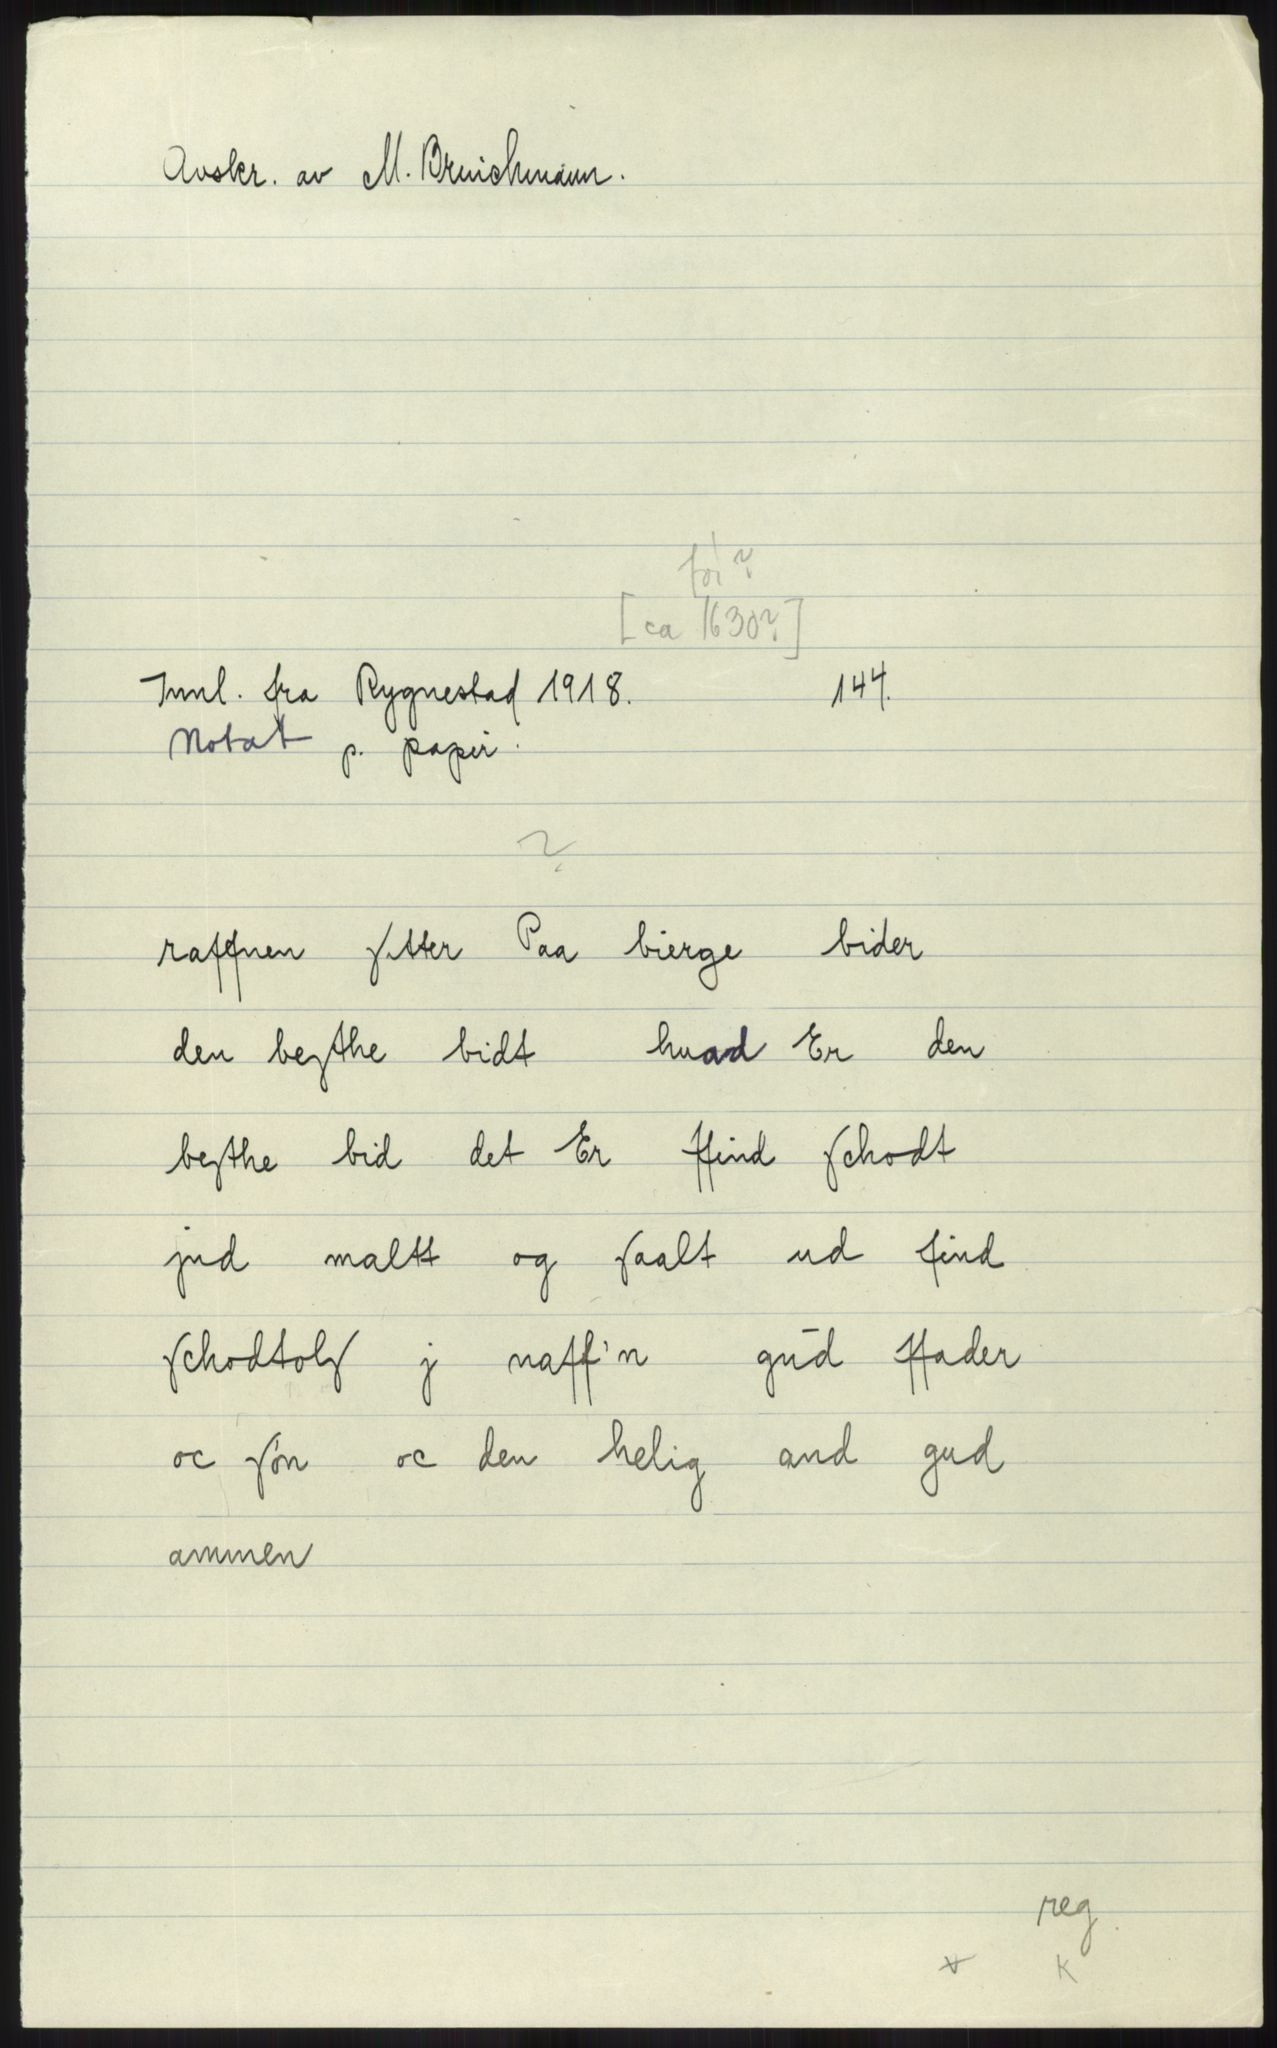 Avskr. av M. Brinchmann.
før?
[ca 1630?]
Innl. fra Rygnestad 1918. 144.
Notat p. papir.
?
raffnen sitter Paa bierge bider
den besthe bidt huad Er den
besthe bid det Er ffind schodt
jnd maltt og saalt ud find
schodtols j naff'n gud ffader
oc søn oc den helig and gud
ammen
reg.
K